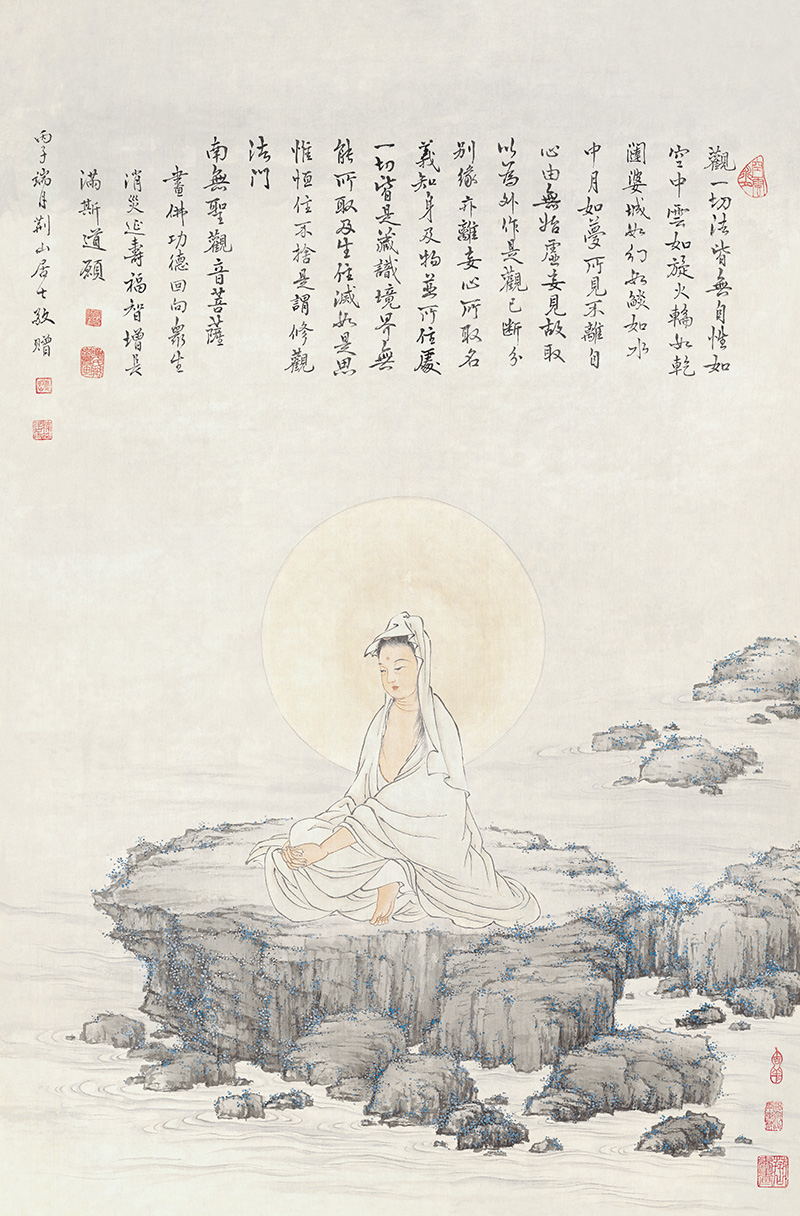 觀一切法皆無自性如
空中雲如旋火輪如乾
闥婆城如幻如燄如水
中月如夢所見不離自
心由無始虛妄見故取
以為外作是觀已断分
别緣亦離妄心所取名
義知身及物並所住處
一切皆是藏識境界無
能所取及生住滅如是思
惟恒住不捨是謂修觀
法門
南無聖觀音菩薩
畫佛功德回向衆生
消災延壽福智增長
滿斯道願
丙子端月荆山居士敬贈